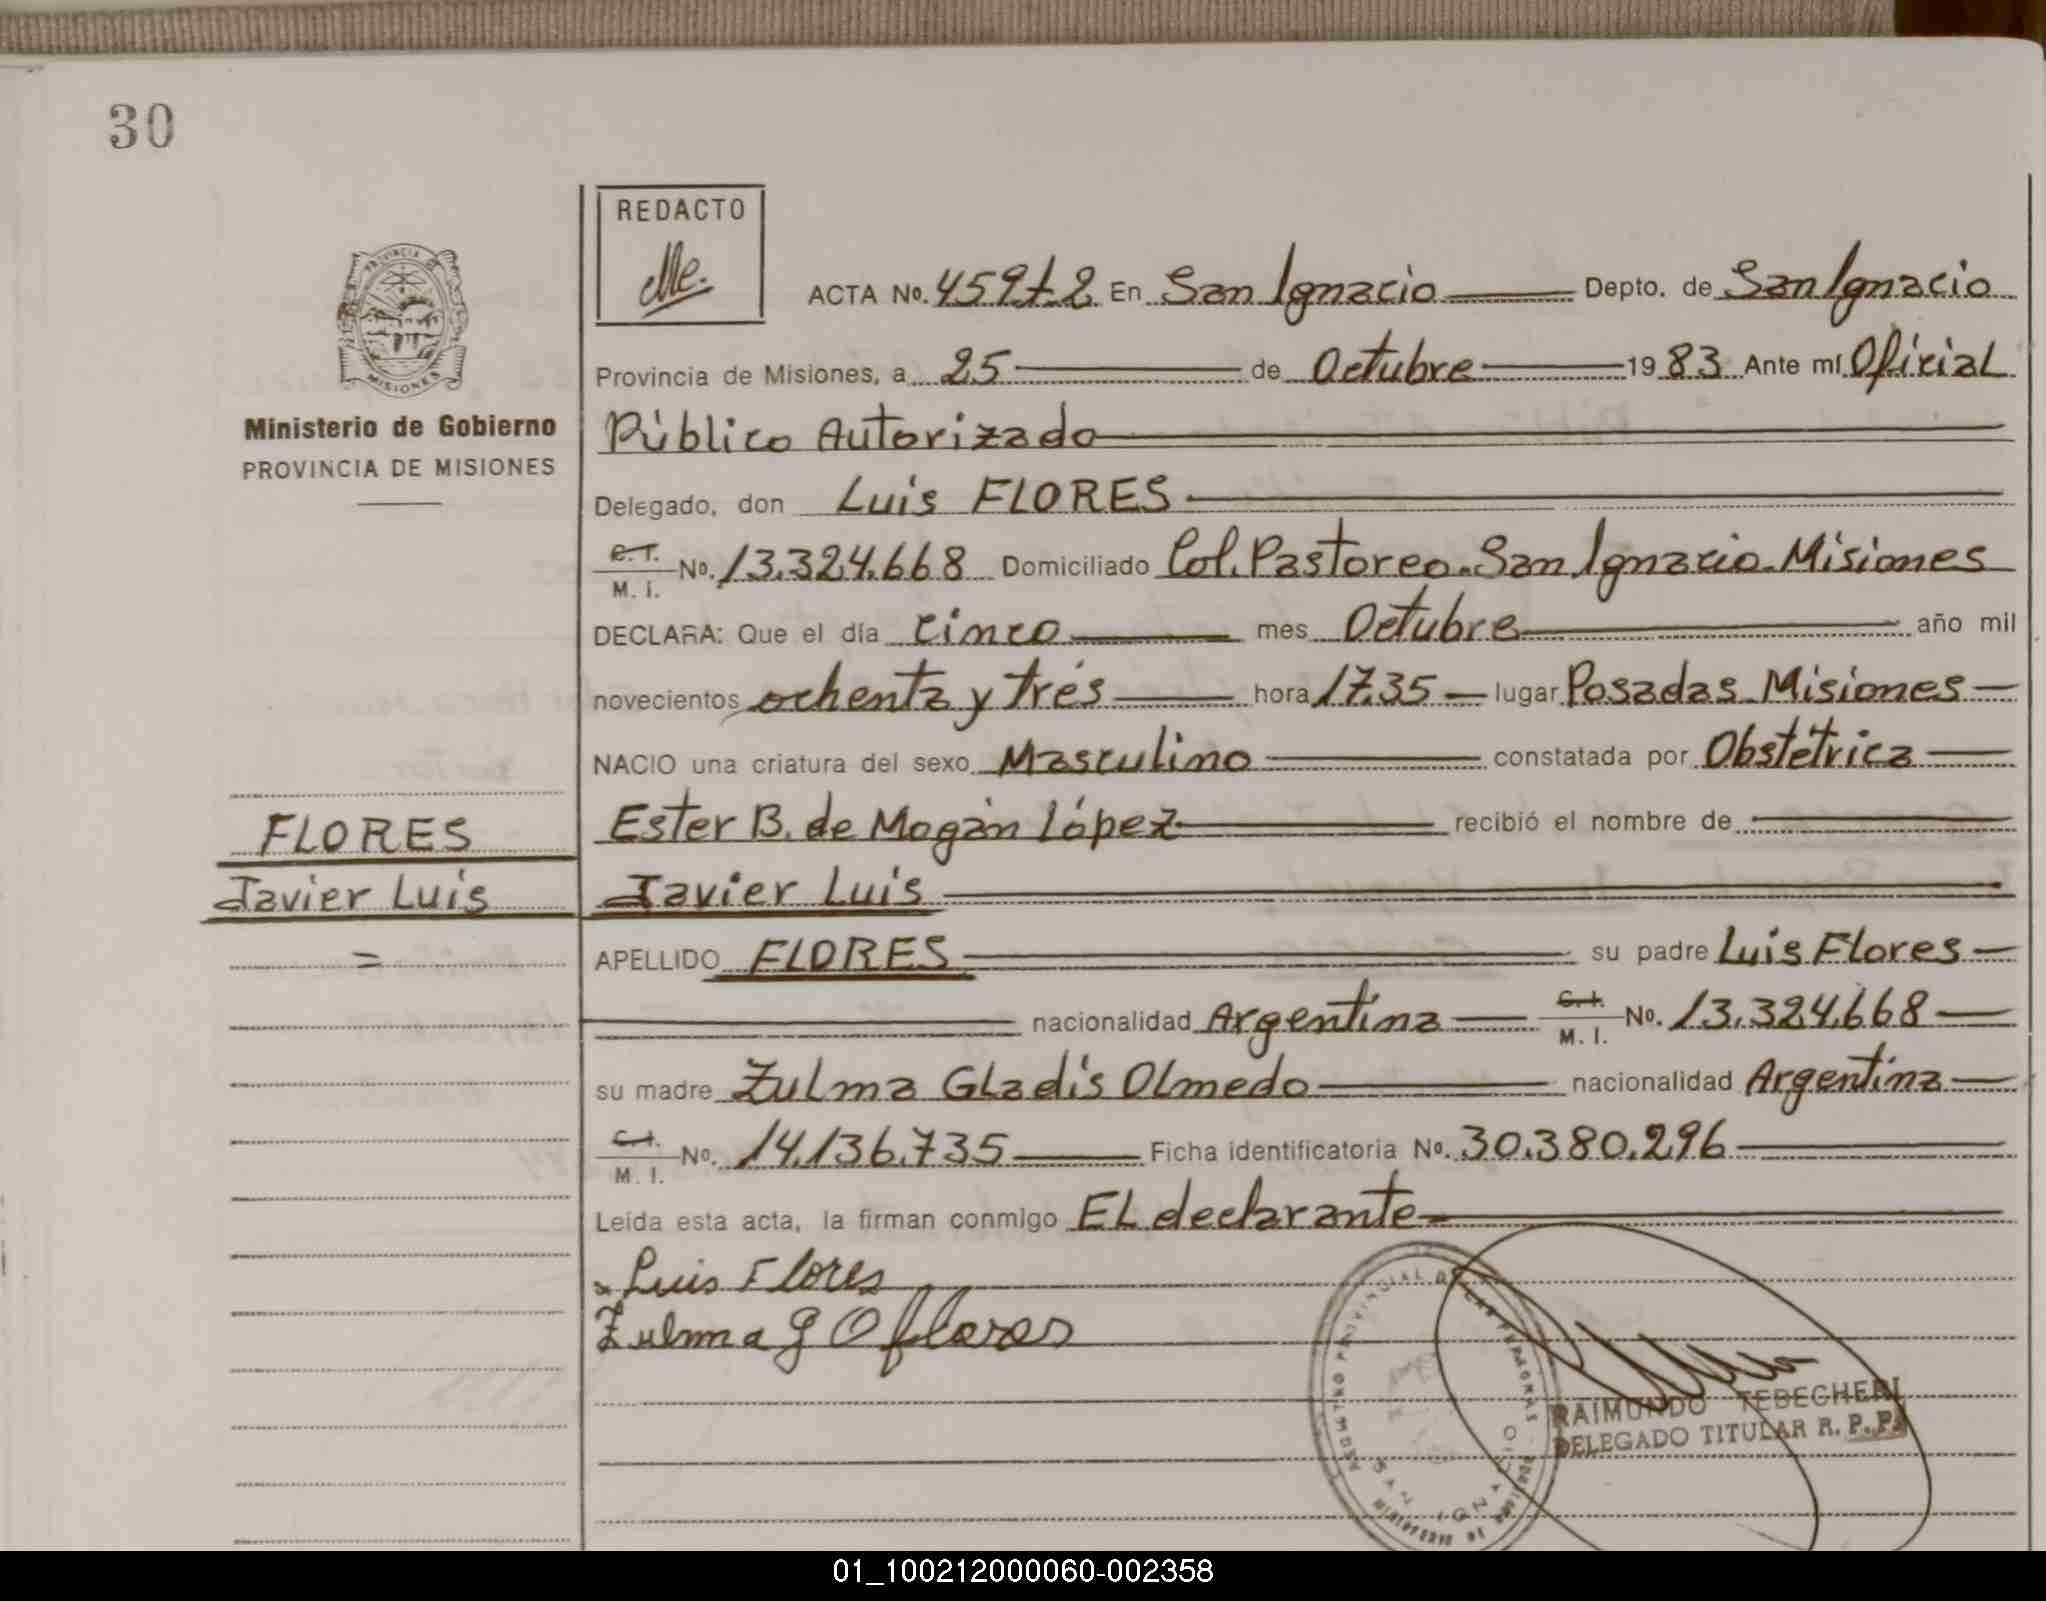 30
REDACTO
Me.
PROVINCIA DE
MISIONES
Ministerio de Gobierno
PROVINCIA DE MISIONES
ACTA No. 459 t 2 En San Ignacio Depto. de San Ignacio
Provincia de Misiones, a 25 de Octubre 1983 Ante mí Oficial
Público Autorizado
Delegado, don Luis FLORES
C.I. M. I. No. 13.324.668 Domiciliado Col. Pastoreo - San Ignacio - Misiones
DECLARA: Que el día cinco mes Octubre año mil
novecientos ochenta y trés hora 17.35 lugar Posadas - Misiones
NACIO una criatura del sexo Masculino constatada por Obstétrica
Ester B. de Mogàn López recibió el nombre de
Javier Luis
APELLIDO FLORES su padre Luis Flores
nacionalidad Argentina C.I. M. I. No. 13.324.668
su madre Zulma Gladis Olmedo nacionalidad Argentina
C.I. M. I. No. 14.136.735 Ficha identificatoria No. 30.380.296
Leída esta acta, la firman conmigo EL declarante
FLORES
Javier Luis
=
x Luis Flores
Zulma g O flores
REGISTRO PROVINCIAL DE LAS PERSONAS
SAN IGNACIO
RAIMUNDO TEBECHERI
DELEGADO TITULAR R. P. P.
01_100212000060-002358